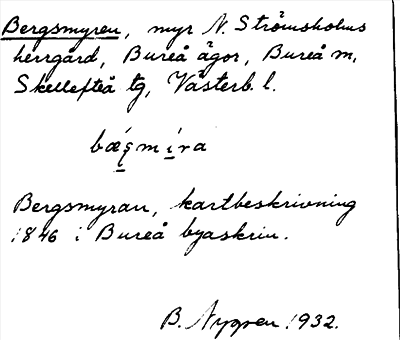 Bergsmyren, myr N. Strömsholms
herrgård, Bureå ägor, Bureå m,
Skellefteå tg, Västerb. l.
bǽʂmɩ́ra
Bergsmyran, kartbeskrivning
1846 i Bureå byaskrin.
B. Nygren 1932.